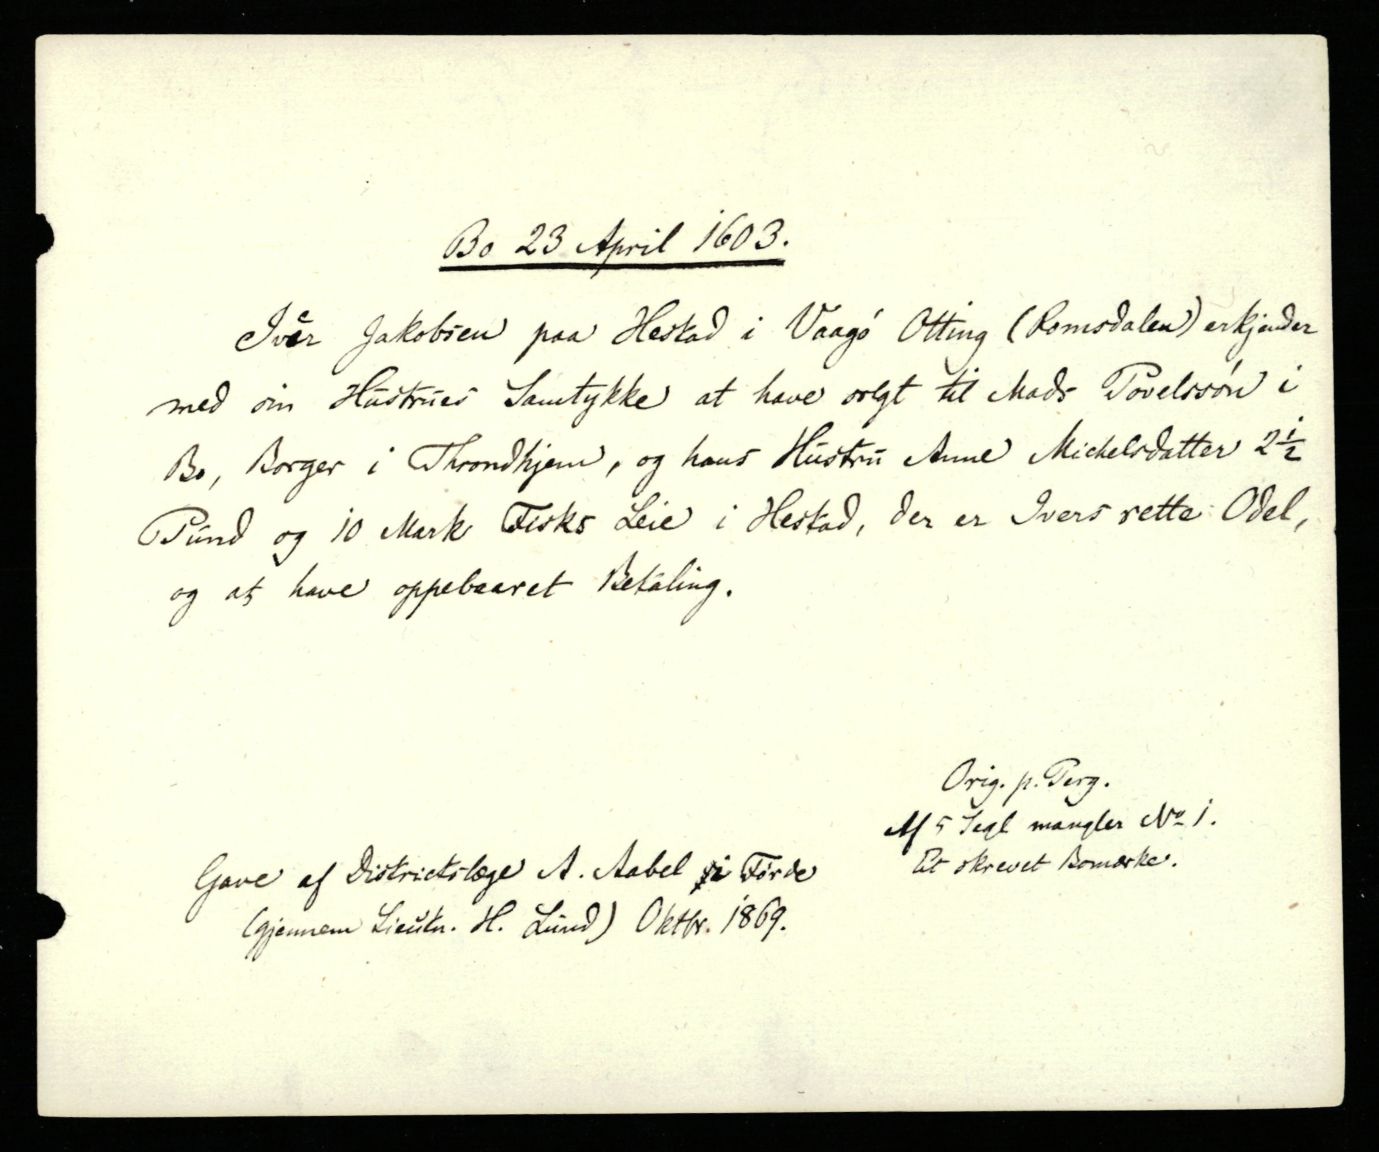 Bo 23 April 1603.
Iver Jakobsen paa Hestad i Vaagó Otting (Romsdalen) erkjender
med sin Hustrues Samtykke at have solgt til Mads Povelssón i
Bo, Borger i Throndhjem, og hans Hustru Anne Michelsdatter 2½
Pund og 10 Mark Fisks Leie i Hestad, der er Ivers rette Odel,
og at have oppebaaret Betaling.
Orig. p. Perg.
Af 5 Segl mangler No 1.
Et skrevet Bomærke.
Gave af Districtslæge A. Aabel i Førde
(gjennem Lieutn. H. Lund) Oktbr. 1869.